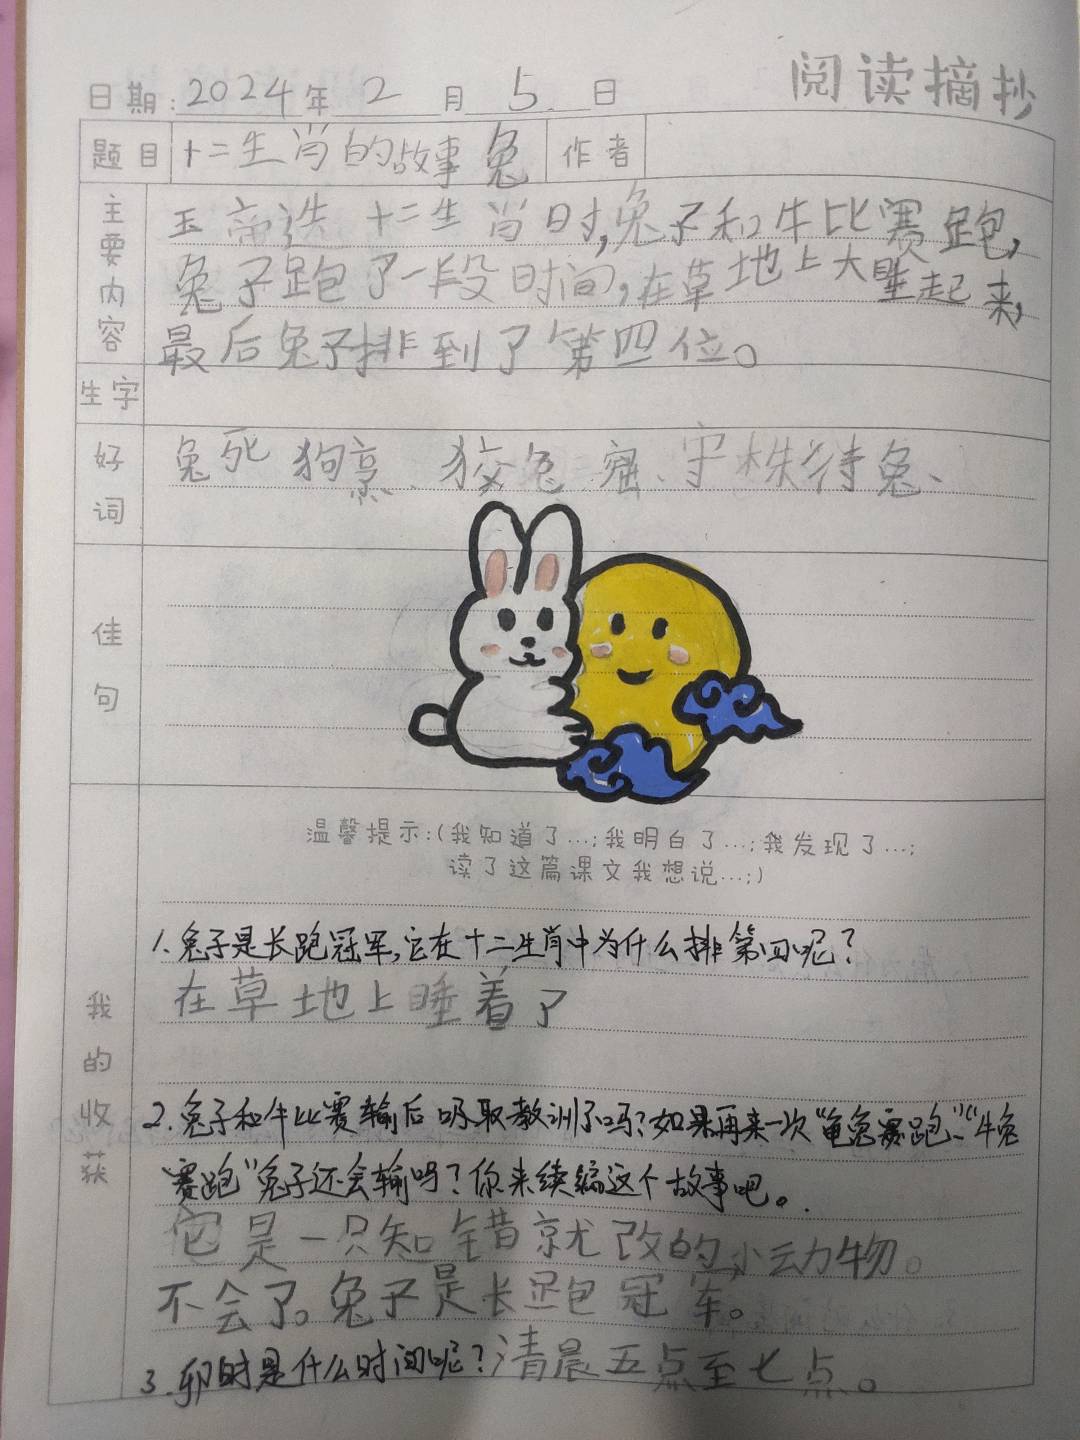 阅读摘抄
日期:2024年2月5日
题目 十二生肖的故事兔 作者
主要内容
玉帝选十二生肖时,兔子和牛比赛跑,
兔子跑了一段时间,在草地上大睡起来,
最后兔子排到了第四位。
生字
好词
兔死狗烹、狡兔窟、守株待兔、
佳句
温馨提示:(我知道了...;我明白了...;我发现了...;
读了这篇课文我想说...;)
我的收获
1.兔子是长跑冠军,它在十二生肖中为什么排第四呢?
在草地上睡着了
2.兔子和牛比赛输后吸取教训了吗?如果再来一次“龟兔赛跑”、“牛兔
赛跑”兔子还会输吗?你来续编这个故事吧。
它是一只知错就改的小动物。
不会了。兔子是长跑冠军。
3.卯时是什么时间呢?清晨五点至七点。